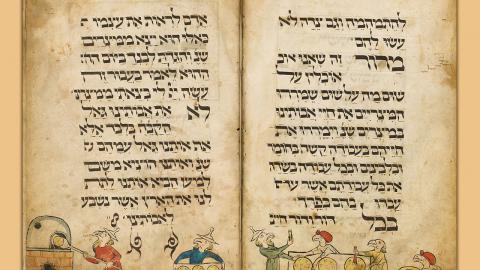 להתמהמה וגם צדה לא
עשו להם
מרור זה שאנו אוכ
אוכלין על
שום מה על שום שמררו
המצריים את חיי אבותינו
במצרים שנ וימררו את
חייהם בעבודה קשה בחומר
ובלבנים ובכל עבודה בשדה
את כל עבודתם אשר
בהם בפרך
בכל דור ודור חייב
אדם לראות את עצמו
כאלו הוא יצא ממצרים
שנ והגדת לבנך ביום ההו
ההוא לאמר בעבור זה
עשה יי לי בצאתי ממצרים
לא את אבותינו גאל
הקבה בלבד אלא
אף אותנו גאל
שנ ואותנו הוציא משם
למען הביא אותנו לתת
לנו את הארץ אשר נשבע
לאבותינו